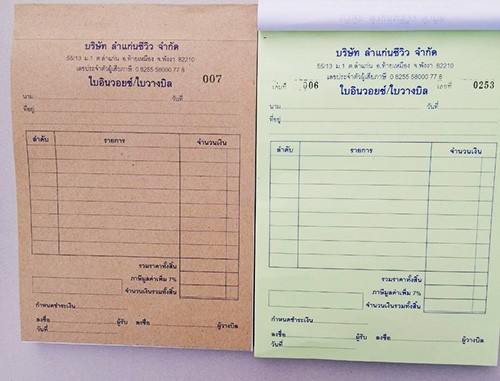 บริษัท ลำแก่นซีวิว จำกัด
55/13 ม.1 ต.ลำแก่น อ.ท้ายเหมือง จ.พังงา 82210
เลขประจำตัวผู้เสียภาษี 0 8255 58000 77 8
ใบอินวอยซ์/ใบวางบิล 007
นาม วันที่
ที่อยู่
ลำดับ รายการ จำนวนเงิน
รวมราคาทั้งสิ้น
ภาษีมูลค่าเพิ่ม 7%
จำนวนเงินรวมทั้งสิ้น
กำหนดชำระเงิน
ลงชื่อ ผู้รับ ลงชื่อ ผู้วางบิล
วันที่
บริษัท ลำแก่นซีวิว จำกัด
55/13 ม.1 ต.ลำแก่น อ.ท้ายเหมือง จ.พังงา 82210
เลขประจำตัวผู้เสียภาษี 0 8255 58000 77 8
เล่มที่ 006 ใบอินวอยซ์/ใบวางบิล เลขที่ 0253
นาม วันที่
ที่อยู่
ลำดับ รายการ จำนวนเงิน
รวมราคาทั้งสิ้น
ภาษีมูลค่าเพิ่ม 7%
จำนวนเงินรวมทั้งสิ้น
กำหนดชำระเงิน
ลงชื่อ ผู้รับ ลงชื่อ ผู้วางบิล
วันที่